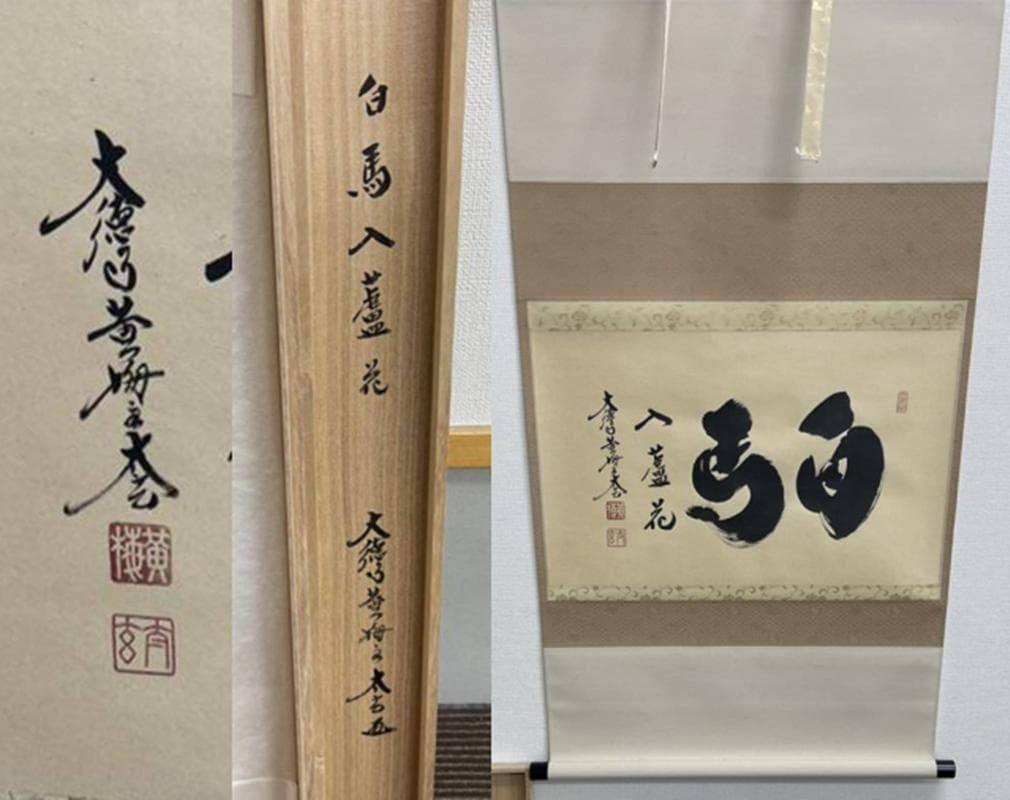 大徳黄梅主太玄
黄梅
太玄
白馬入蘆花
大徳黄梅主太玄
白馬
入蘆花
大徳黄梅主太玄